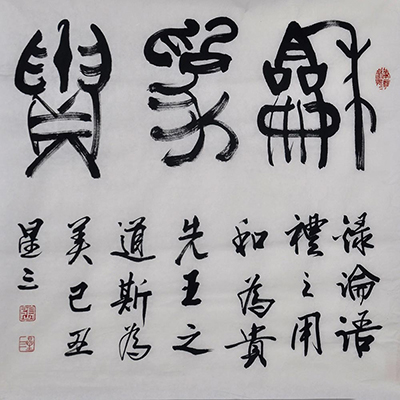 龢為貴
録論語
禮之用
和為貴
先王之
道斯為
美己丑
星三